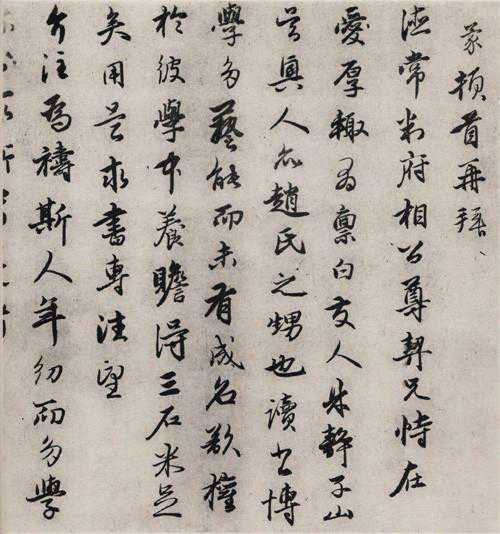 蒙頓首再拜
德常判府相公尊契兄恃在
愛厚輙有稟白友人朱靜子山
吳興人亦趙氏之甥也讀書博
學多藝能而未有成名欲權
於彼學中養贍得三石米足
矣用是求書專注望
介注為禱斯人年幼而多學